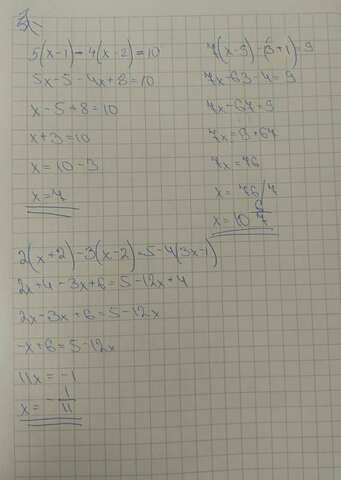 3.
5(x-1)-4(x-2)=10
5x-5-4x+8=10
x-5+8=10
x+3=10
x=10-3
x=7
7(x-9)-(3+1)=9
7x-63-4=9
7x-67=9
7x=9+67
7x=76
x=76/7
x=10 6/7
2(x+2)-3(x-2)=5-4(3x-1)
2x+4-3x+6=5-12x+4
2x-3x+6=5-12x
-x+6=5-12x
11x=-1
x=-1/11